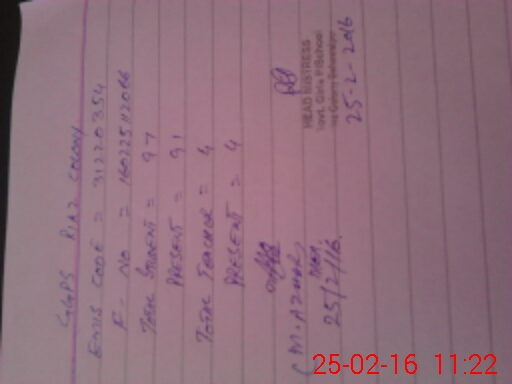 GGPS RIAZ COLONY
EMIS CODE = 31220354
TOTAL STUDENT = 97
PRESENT = 91
TOTAL TEACHER = 4
PRESENT = 4
(M. AZHAR)
25/2/16.
HEAD MISTRESS
Govt. Girls P/School
Colony Bahawalpur
25-2-2016
25-02-16 11:22